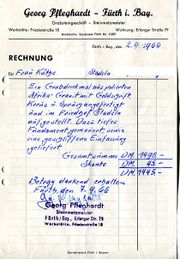 Georg Pfleghardt - Fürth i. Bay.
Grabsteingeschäft - Steinmetzmeister
Werkstätte: Friedenstraße 18
Wohnung: Erlanger Straße 79
Fürth i. Bay., den 2.9.1966
RECHNUNG
für Frau Kätze Stadeln
Ein Grabdenkmal aus poliertem
Afrika-Granit mit Goldschrift
Kreuz u. Sprüng angefertigt
und im Friedhof Stadeln
aufgestellt. Dazu tiefes
Fundament gemauert sowie
eine Einfassung geliefert.
Gesamtsumme DM. 1495.-
Skonto DM. 45.-
DM. 1445.-
Betrag dankend erhalten
Fürth, den 7.9.66
Georg Pfleghardt
Steinmetzmeister
Fürth i. Bay., Erlanger Str. 79
Werkstätte: Friedenstraße 18